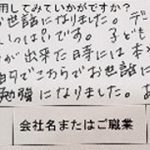 用してみていかがですか？
お世話になりました。デー
いっぱいです。子ども
が出来た時には本
内でこちらでお世話に
勉強になりました。あ
会社名またはご職業